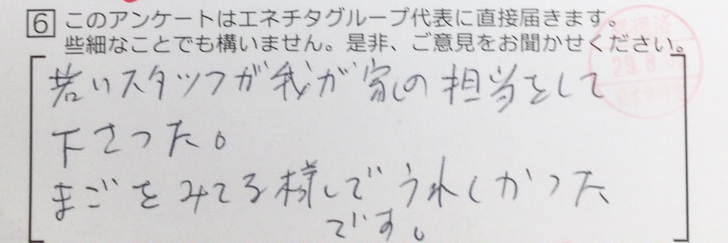 6 このアンケートはエネチタグループ代表に直接届きます。
些細なことでも構いません。是非、ご意見をお聞かせください。
若いスタッフが我が家の担当をして
下さった。
まごをみてる様でうれしかった
です。